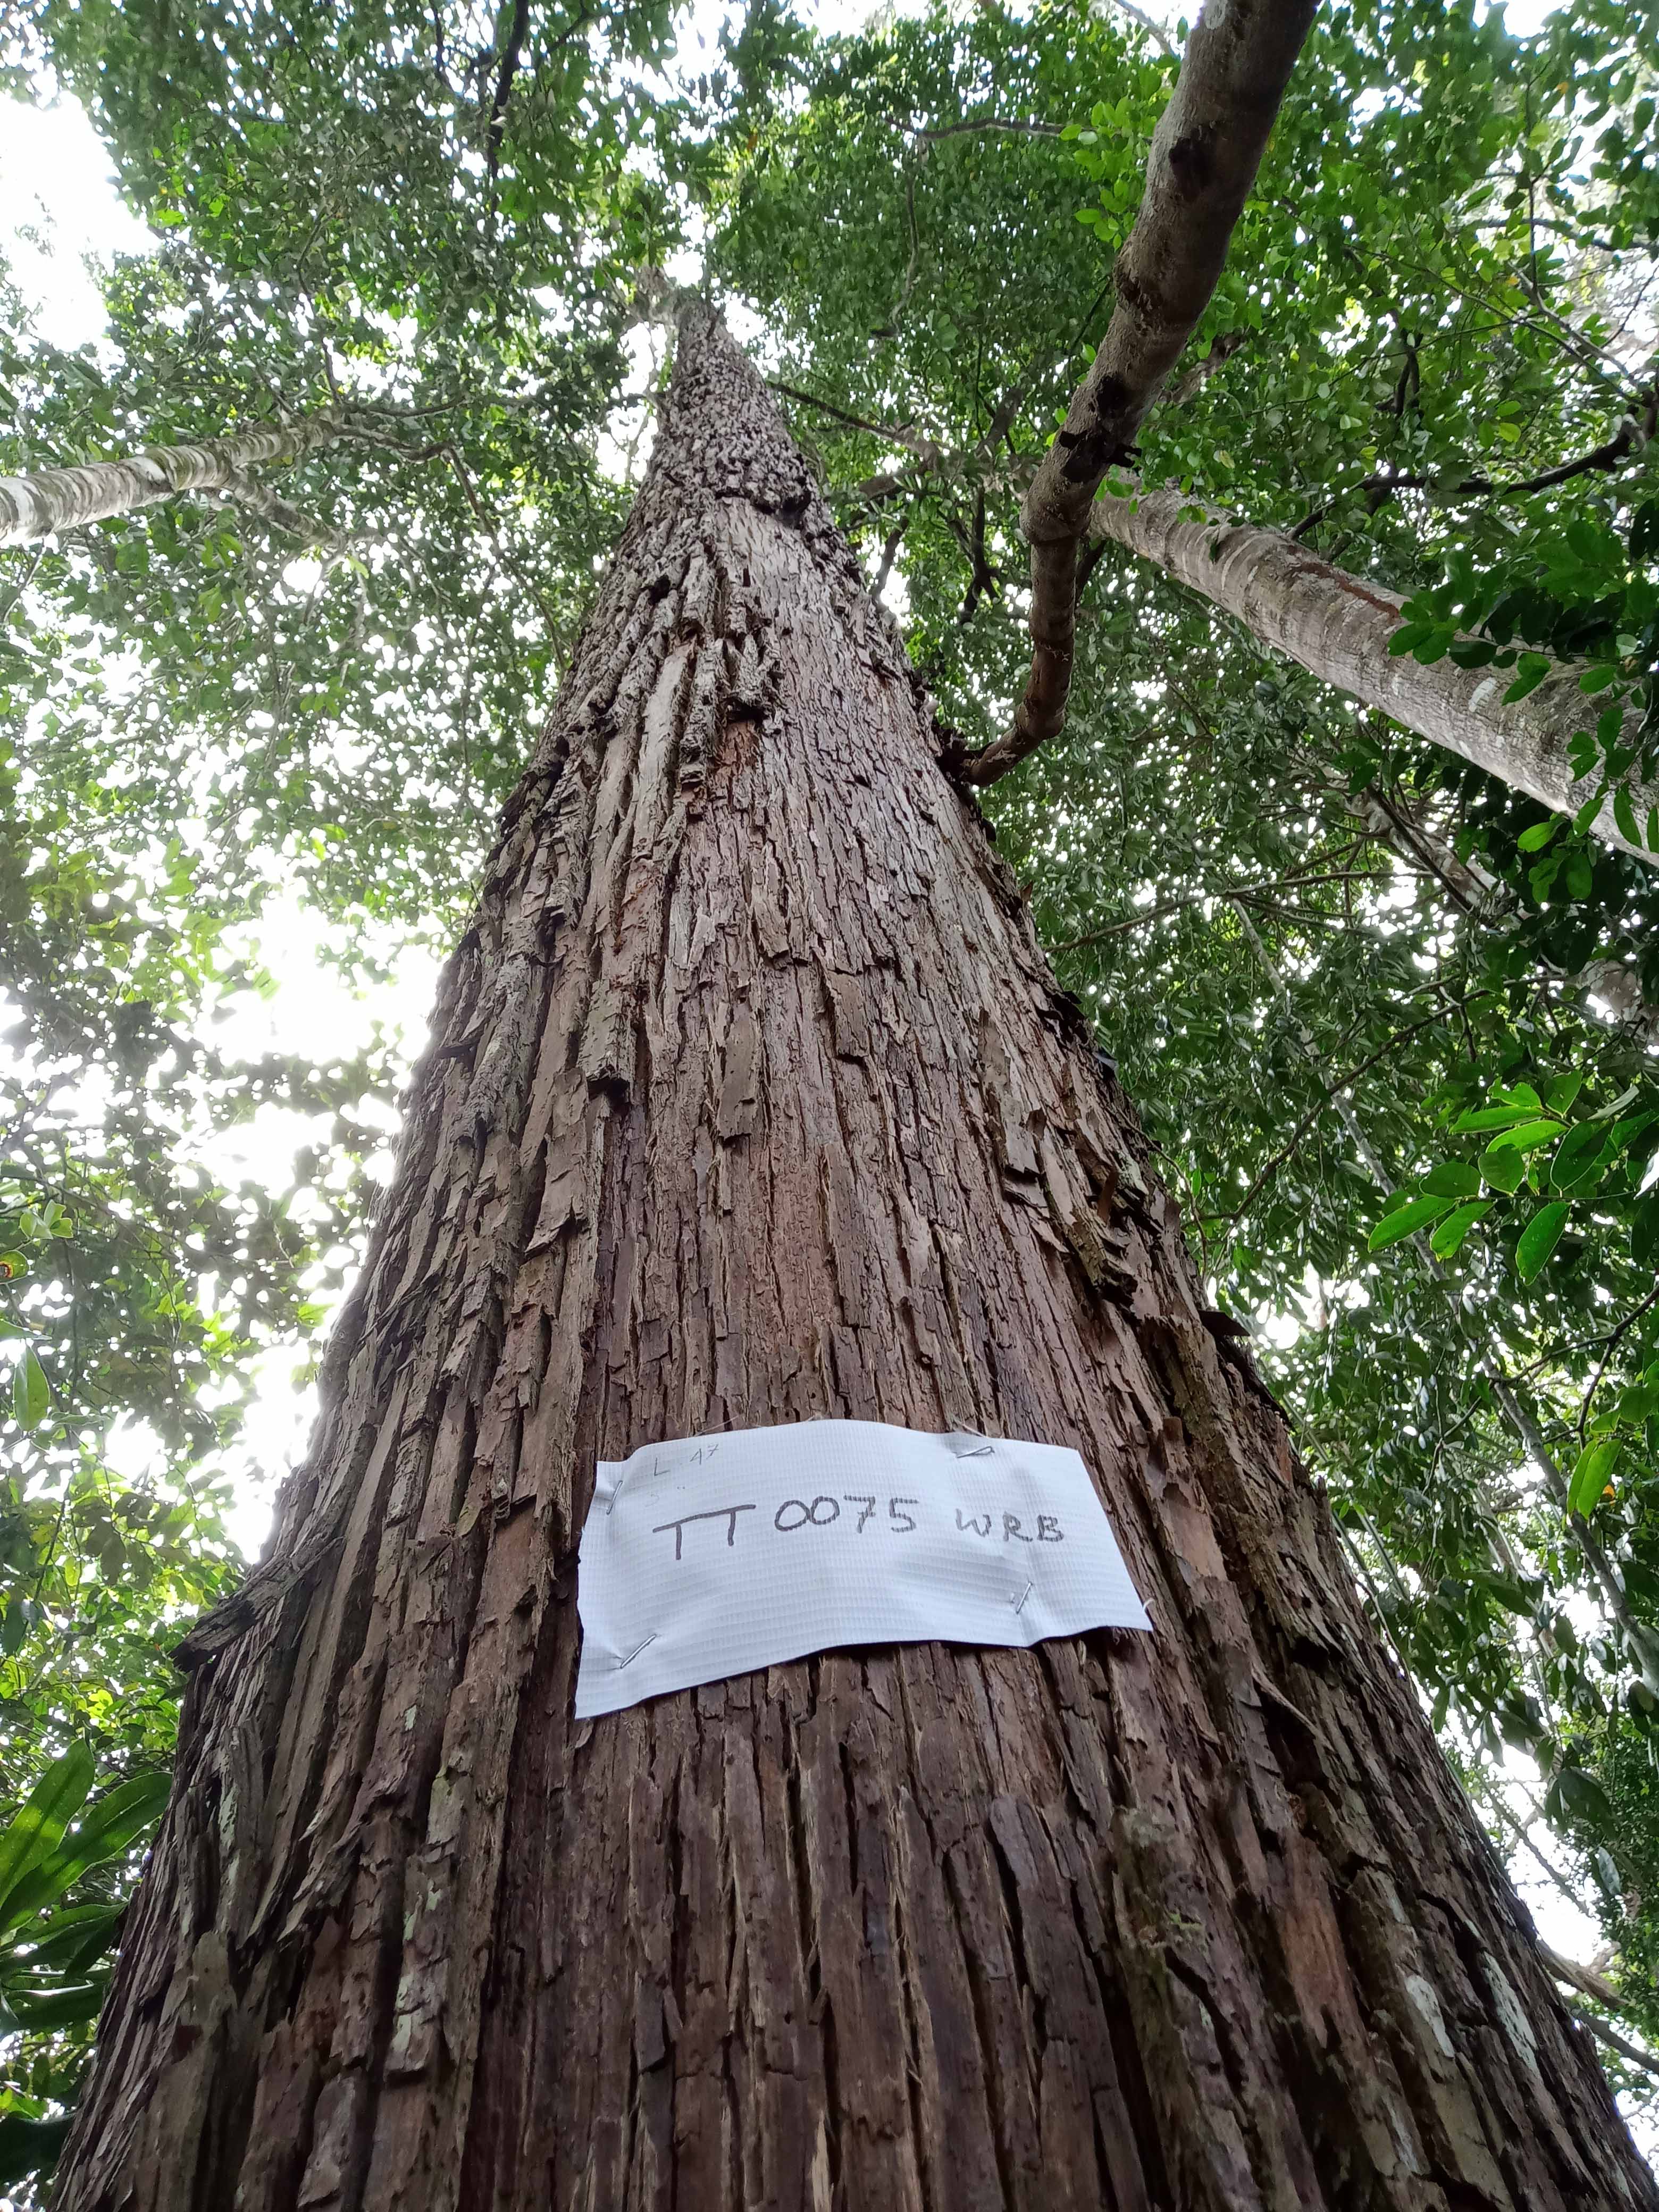 L 47
TT 0075 WRB